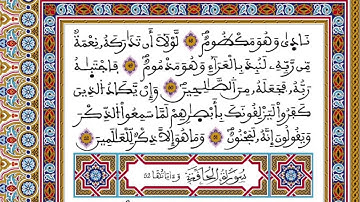 نَادَىٰ وَهُوَ مَكْظُومٌ لَّوْلَا أَن تَدَارَكَهُ نِعْمَةٌ
مِّن رَّبِّهِ لَنُبِذَ بِالْعَرَاءِ وَهُوَ مَذْمُومٌ فَاجْتَبَاهُ
رَبُّهُ فَجَعَلَهُ مِنَ الصَّالِحِينَ وَإِن يَكَادُ الَّذِينَ
كَفَرُوا لَيَزْلِقُونَكَ بِأَبْصَارِهِمْ لَمَّا سَمِعُوا الذِّكْرَ
وَيَقُولُونَ إِنَّهُ لَمَجْنُونٌ وَمَا هُوَ إِلَّا ذِكْرٌ لِّلْعَالَمِينَ
سُورَةُ الْحَاقَّةِ وَءَايَاتُهَا 52